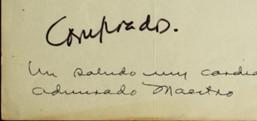 Comprados.
Un saludo muy cordia
admirado Maestro